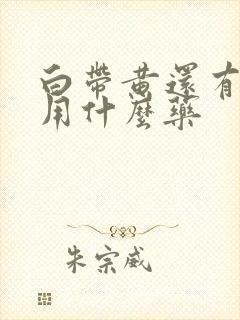 白帶黃還有
用什麼藥
朱宗威